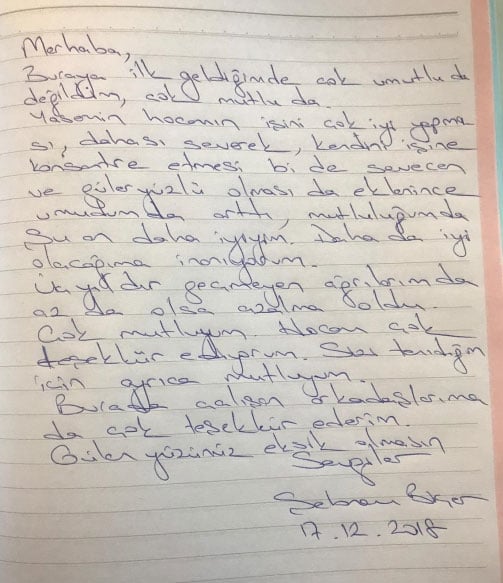 Merhaba,
Buraya ilk geldiğimde çok umutlu da
değildim, çok mutlu da.
Yasemin hocanın işini çok iyi yapma
sı, dahası severek, kendini işine
konsantre etmesi bi de sevecen
ve güleryüzlü olması da eklenince
umudum da arttı, mutluluğum da
Şu an daha iyiyim. Daha da iyi
olacağıma inanıyorum.
İki yıldır geçmeyen ağrılarımda
az da olsa azalma oldu.
Çok mutluyum. Hocam çok
teşekkür ediyorum. Sizi tanıdığım
için ayrıca mutluyum.
Burada çalışan arkadaşlarıma
da çok teşekkür ederim.
Güler yüzünüz eksik olmasın
Sevgiler
17.12.2018